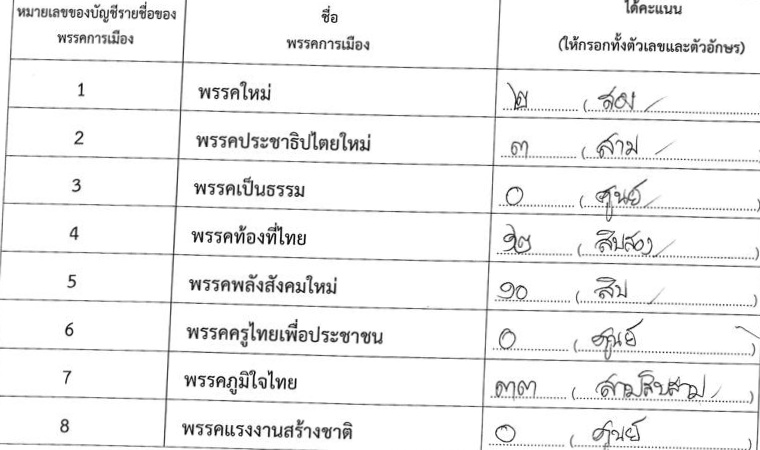 หมายเลขของบัญชีรายชื่อของ ชื่อ ได้คะแนน
พรรคการเมือง พรรคการเมือง (ให้กรอกทั้งตัวเลขและตัวอักษร)
1 พรรคใหม่ ๒ (สอง)
2 พรรคประชาธิปไตยใหม่ ๓ (สาม)
3 พรรคเป็นธรรม ๐ (ศูนย์)
4 พรรคท้องที่ไทย ๑๒ (สิบสอง)
5 พรรคพลังสังคมใหม่ ๑๐ (สิบ)
6 พรรคครูไทยเพื่อประชาชน ๐ (ศูนย์)
7 พรรคภูมิใจไทย ๓๓ (สามสิบสาม)
8 พรรคแรงงานสร้างชาติ ๐ (ศูนย์)